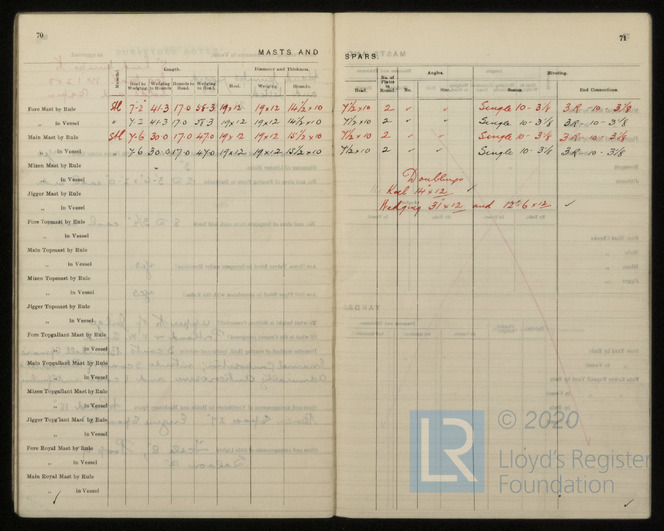 70
71
MASTS AND
SPARS
Material
Length.
Diameter and Thickness.
No. of Plates in Round.
Angles.
Riveting.
Heel to Wedging
Wedging to Hounds
Hounds to Head.
Wedging to Head.
Heel.
Wedging.
Hounds.
Head.
No.
Size.
Seams.
End Connections.
Fore Mast by Rule Stl 7-2 41·3 17·0 58·3 19×12 19×12 14½×10 7½×10 2 ✓ ✓ Single 10 - 3⅛ 3R - 10 - 3⅛
„ in Vessel „ 7-2 41·3 17·0 58·3 19×12 19×12 14½×10 7½×10 2 ✓ ✓ Single 10 - 3⅛ 3R - 10 - 3⅛
Main Mast by Rule Stl 7-6 30·0 17·0 47·0 19×12 19×12 15½×10 7½×10 2 ✓ ✓ Single 10 - 3⅛ 3R - 10 - 3⅛
„ in Vessel 7-6 30·0 17·0 47·0 19×12 19×12 15½×10 7½×10 2 ✓ ✓ Single 10 - 3⅛ 3R - 10 - 3⅛
Mizen Mast by Rule
„ in Vessel
Doublings
Jigger Mast by Rule
Keel 14×12 ✓
„ in Vessel
Wedging 3/1×12 and 12·6×12 ✓
Fore Topmast by Rule
„ in Vessel
Main Topmast by Rule
„ in Vessel
Mizen Topmast by Rule
„ in Vessel
Jigger Topmast by Rule
„ in Vessel
Fore Topgallant Mast by Rule
„ in Vessel
Main Topgallant Mast by Rule
„ in Vessel
Mizen Topgallant Mast by Rule
„ in Vessel
Jigger Topg'lant Mast by Rule
„ in Vessel
Fore Royal Mast by Rule
„ in Vessel
Main Royal Mast by Rule
„ in Vessel
LR
© 2020
Lloyd's Register
Foundation